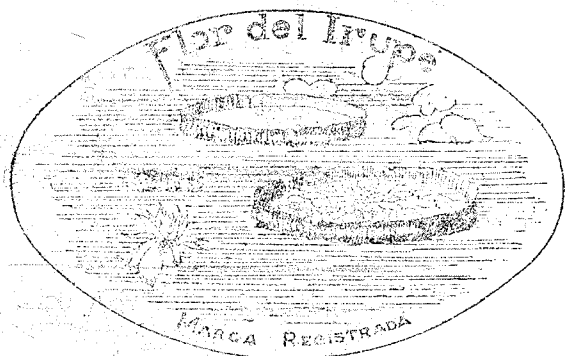 Flor del Irupe
MARCA REGISTRADA